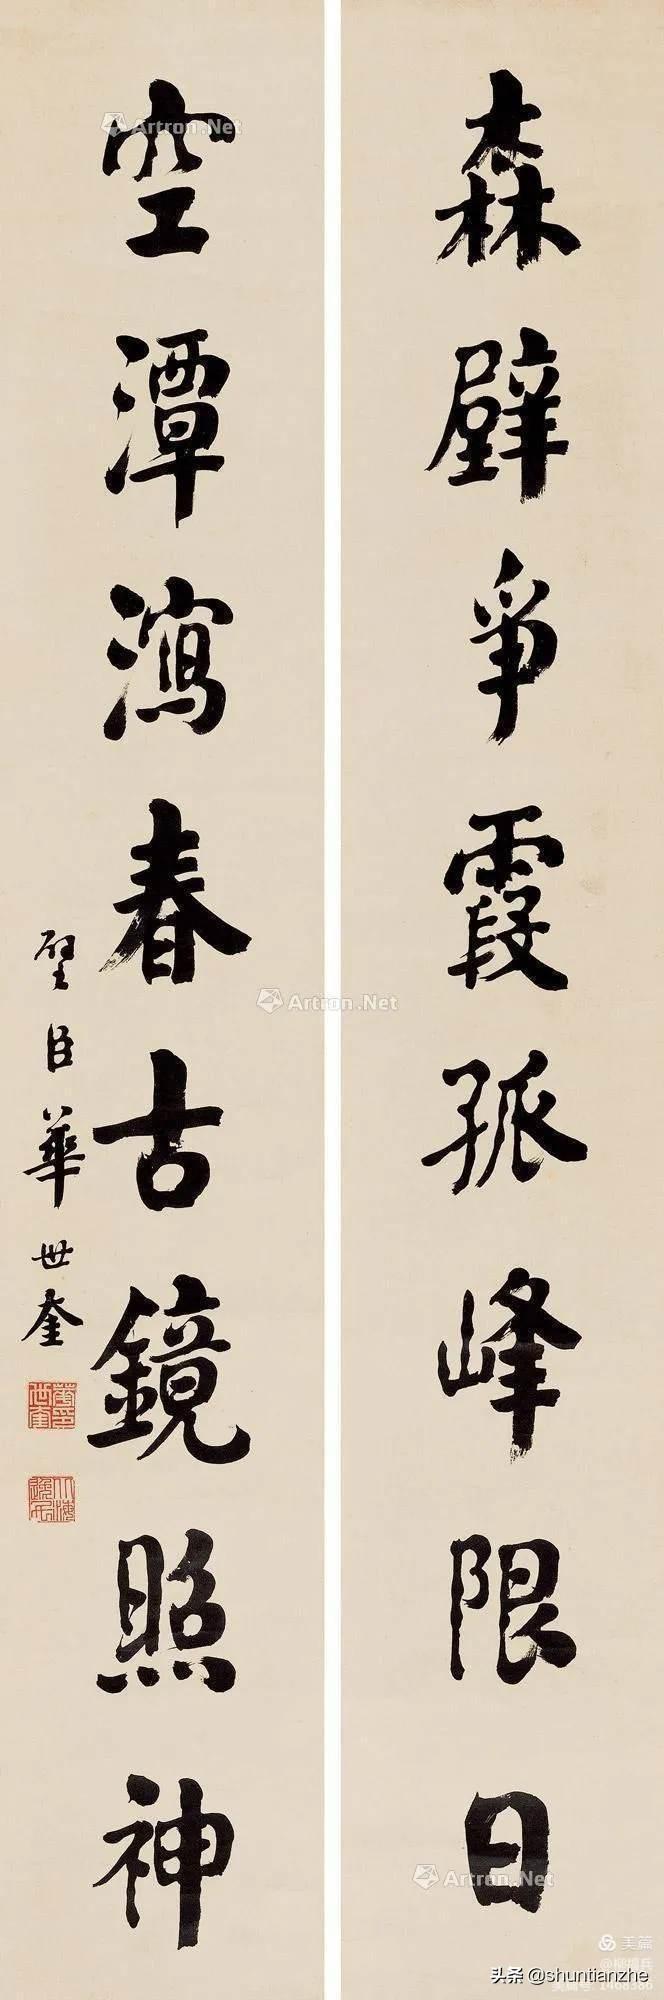 森壁爭霞孤峰限日
空潭瀉春古鏡照神
璧臣華世奎
華世奎印
Artron.Net
Artron.Net
Artron.Net
美篇
头条 @shuntianzhe